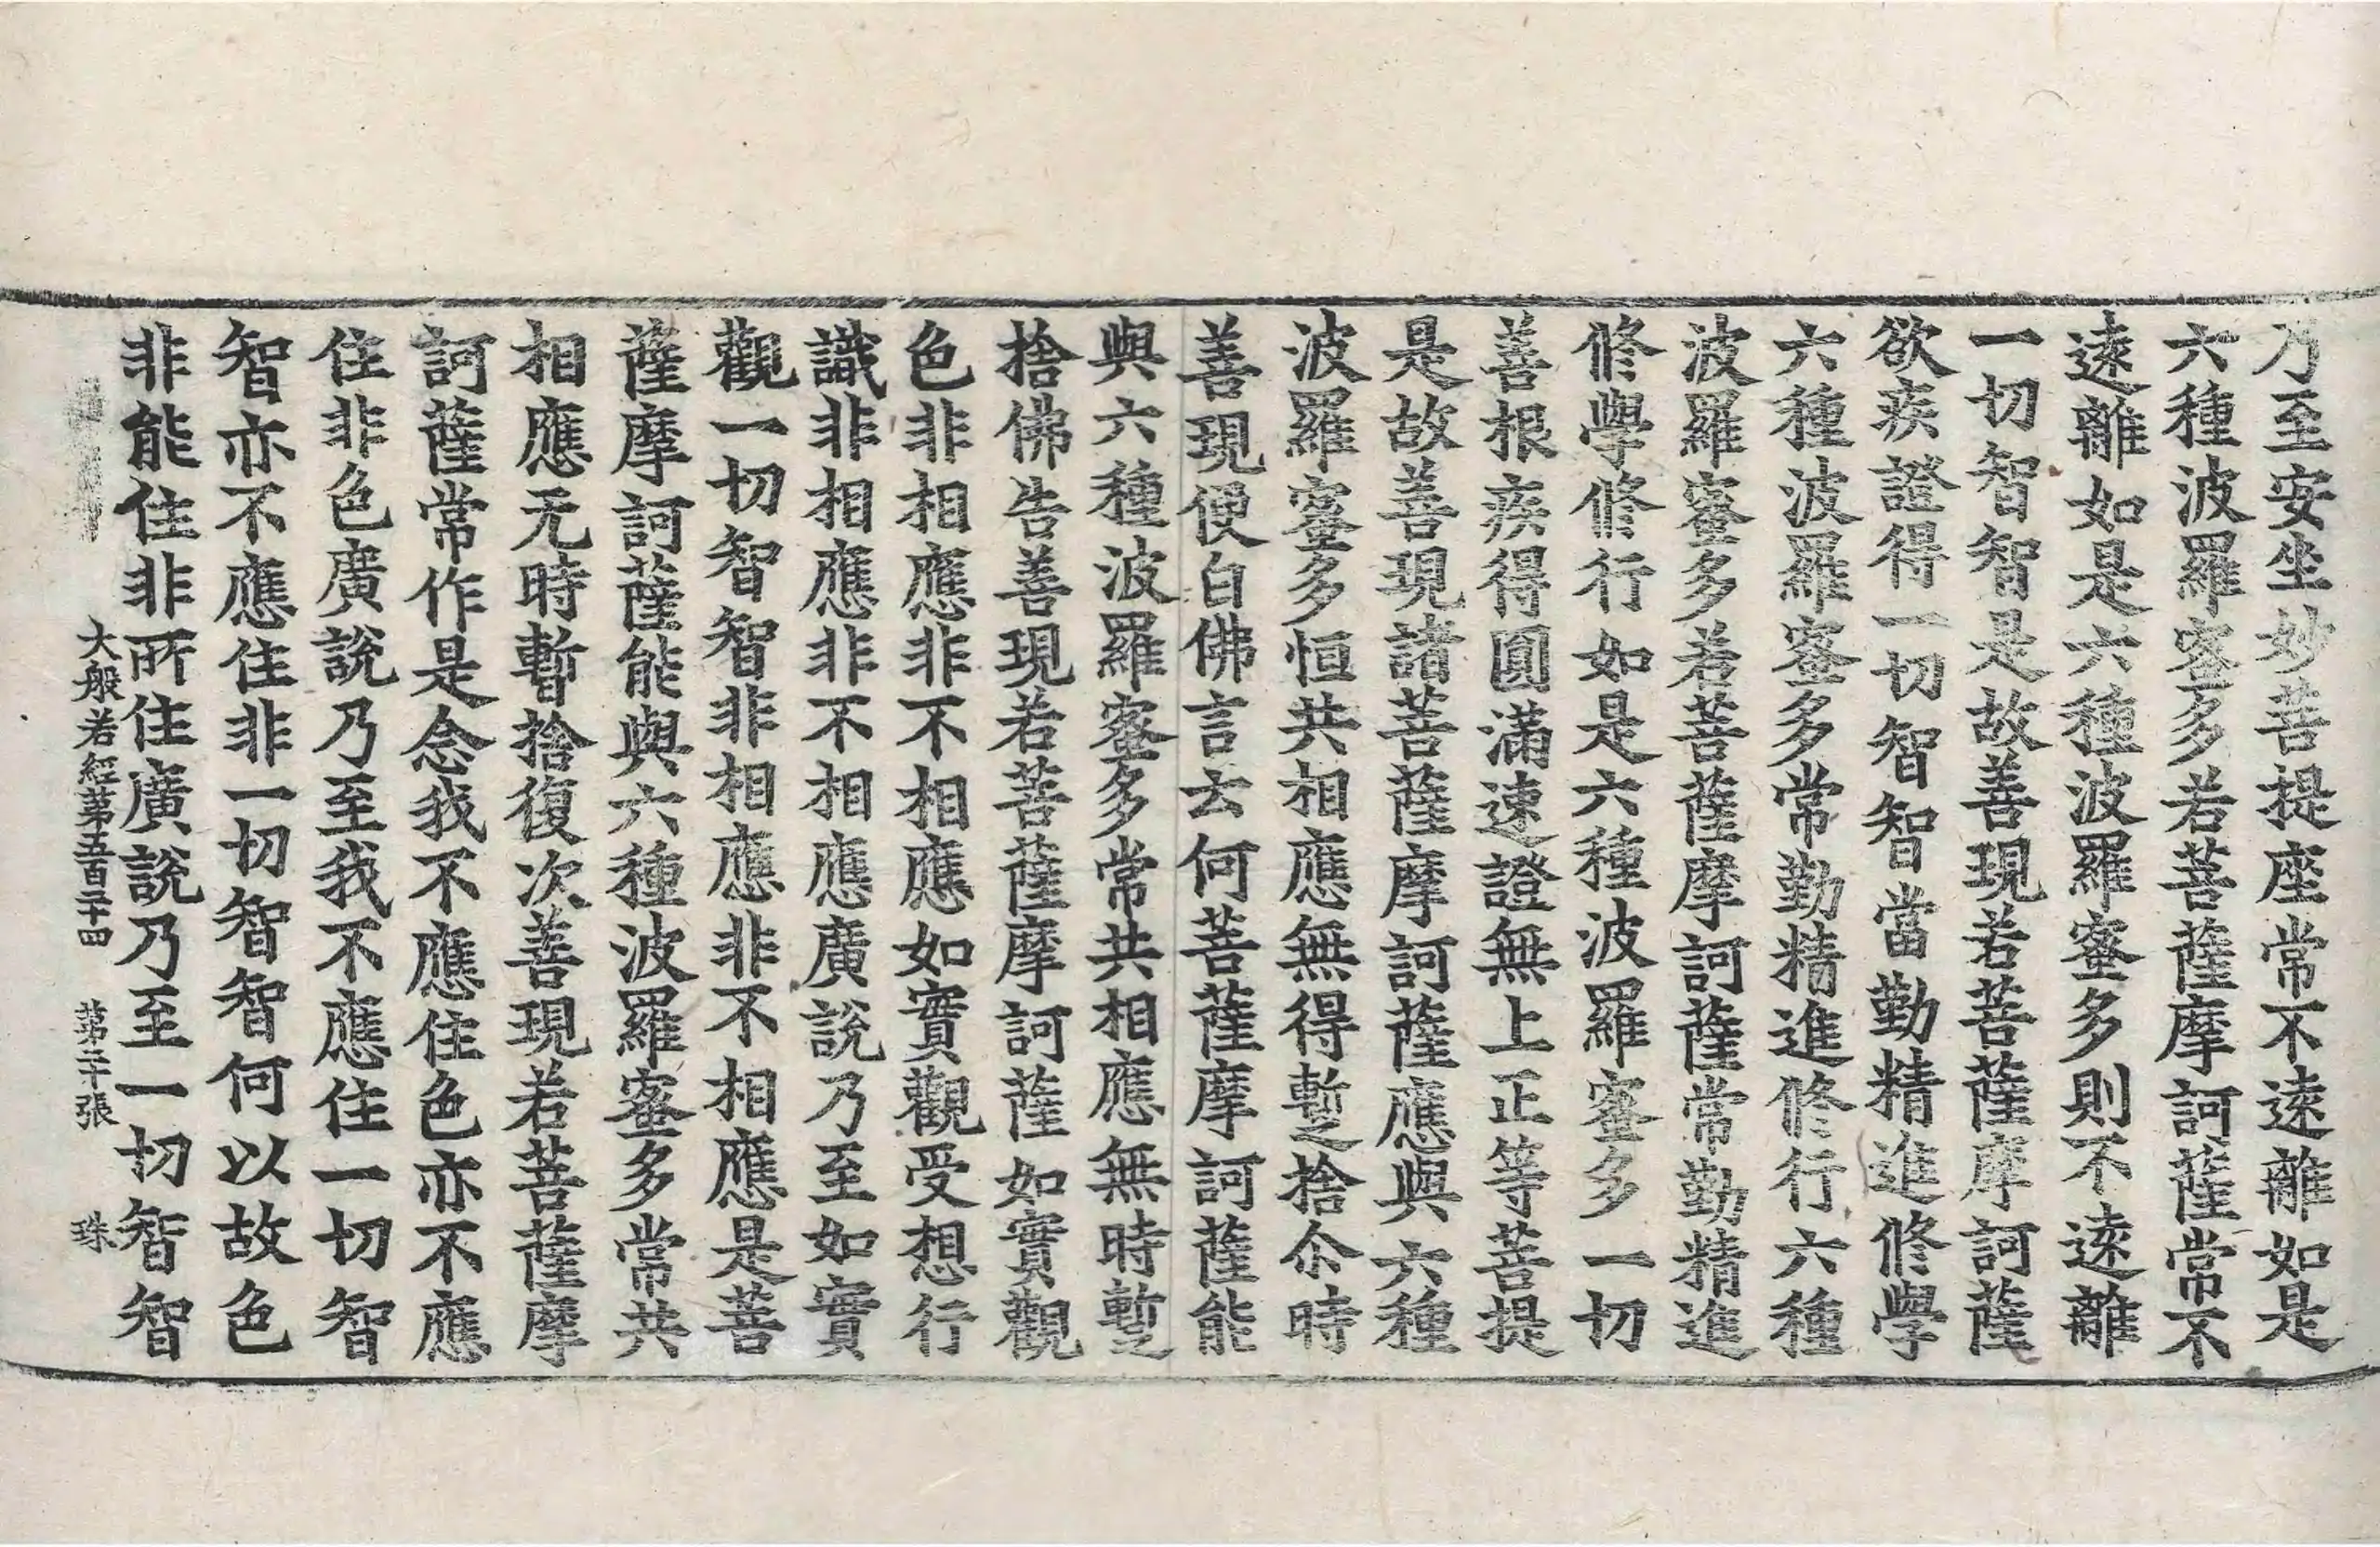 乃至安坐妙菩提座常不遠離如是
六種波羅蜜多若菩薩摩訶薩常不
遠離如是六種波羅蜜多則不遠離
一切智智是故善現若菩薩摩訶薩
欲疾證得一切智智當勤精進修學
六種波羅蜜多常勤精進修行六種
波羅蜜多若菩薩摩訶薩常勤精進
修學修行如是六種波羅蜜多一切
善根疾得圓滿速證無上正等菩提
是故善現諸菩薩摩訶薩應與六種
波羅蜜多恒共相應無得蹔捨尒時
善現便白佛言云何菩薩摩訶薩能
與六種波羅蜜多常共相應無時蹔
捨佛告善現若菩薩摩訶薩如實觀
色非相應非不相應如實觀受想行
識非相應非不相應廣說乃至如實
觀一切智智非相應非不相應是菩
薩摩訶薩能與六種波羅蜜多常共
相應无時暫捨復次善現若菩薩摩
訶薩常作是念我不應住色亦不應
住非色廣說乃至我不應住一切智
智亦不應住非一切智智何以故色
非能住非所住廣說乃至一切智智
大般若經苐五百二十四 苐二十張 珠